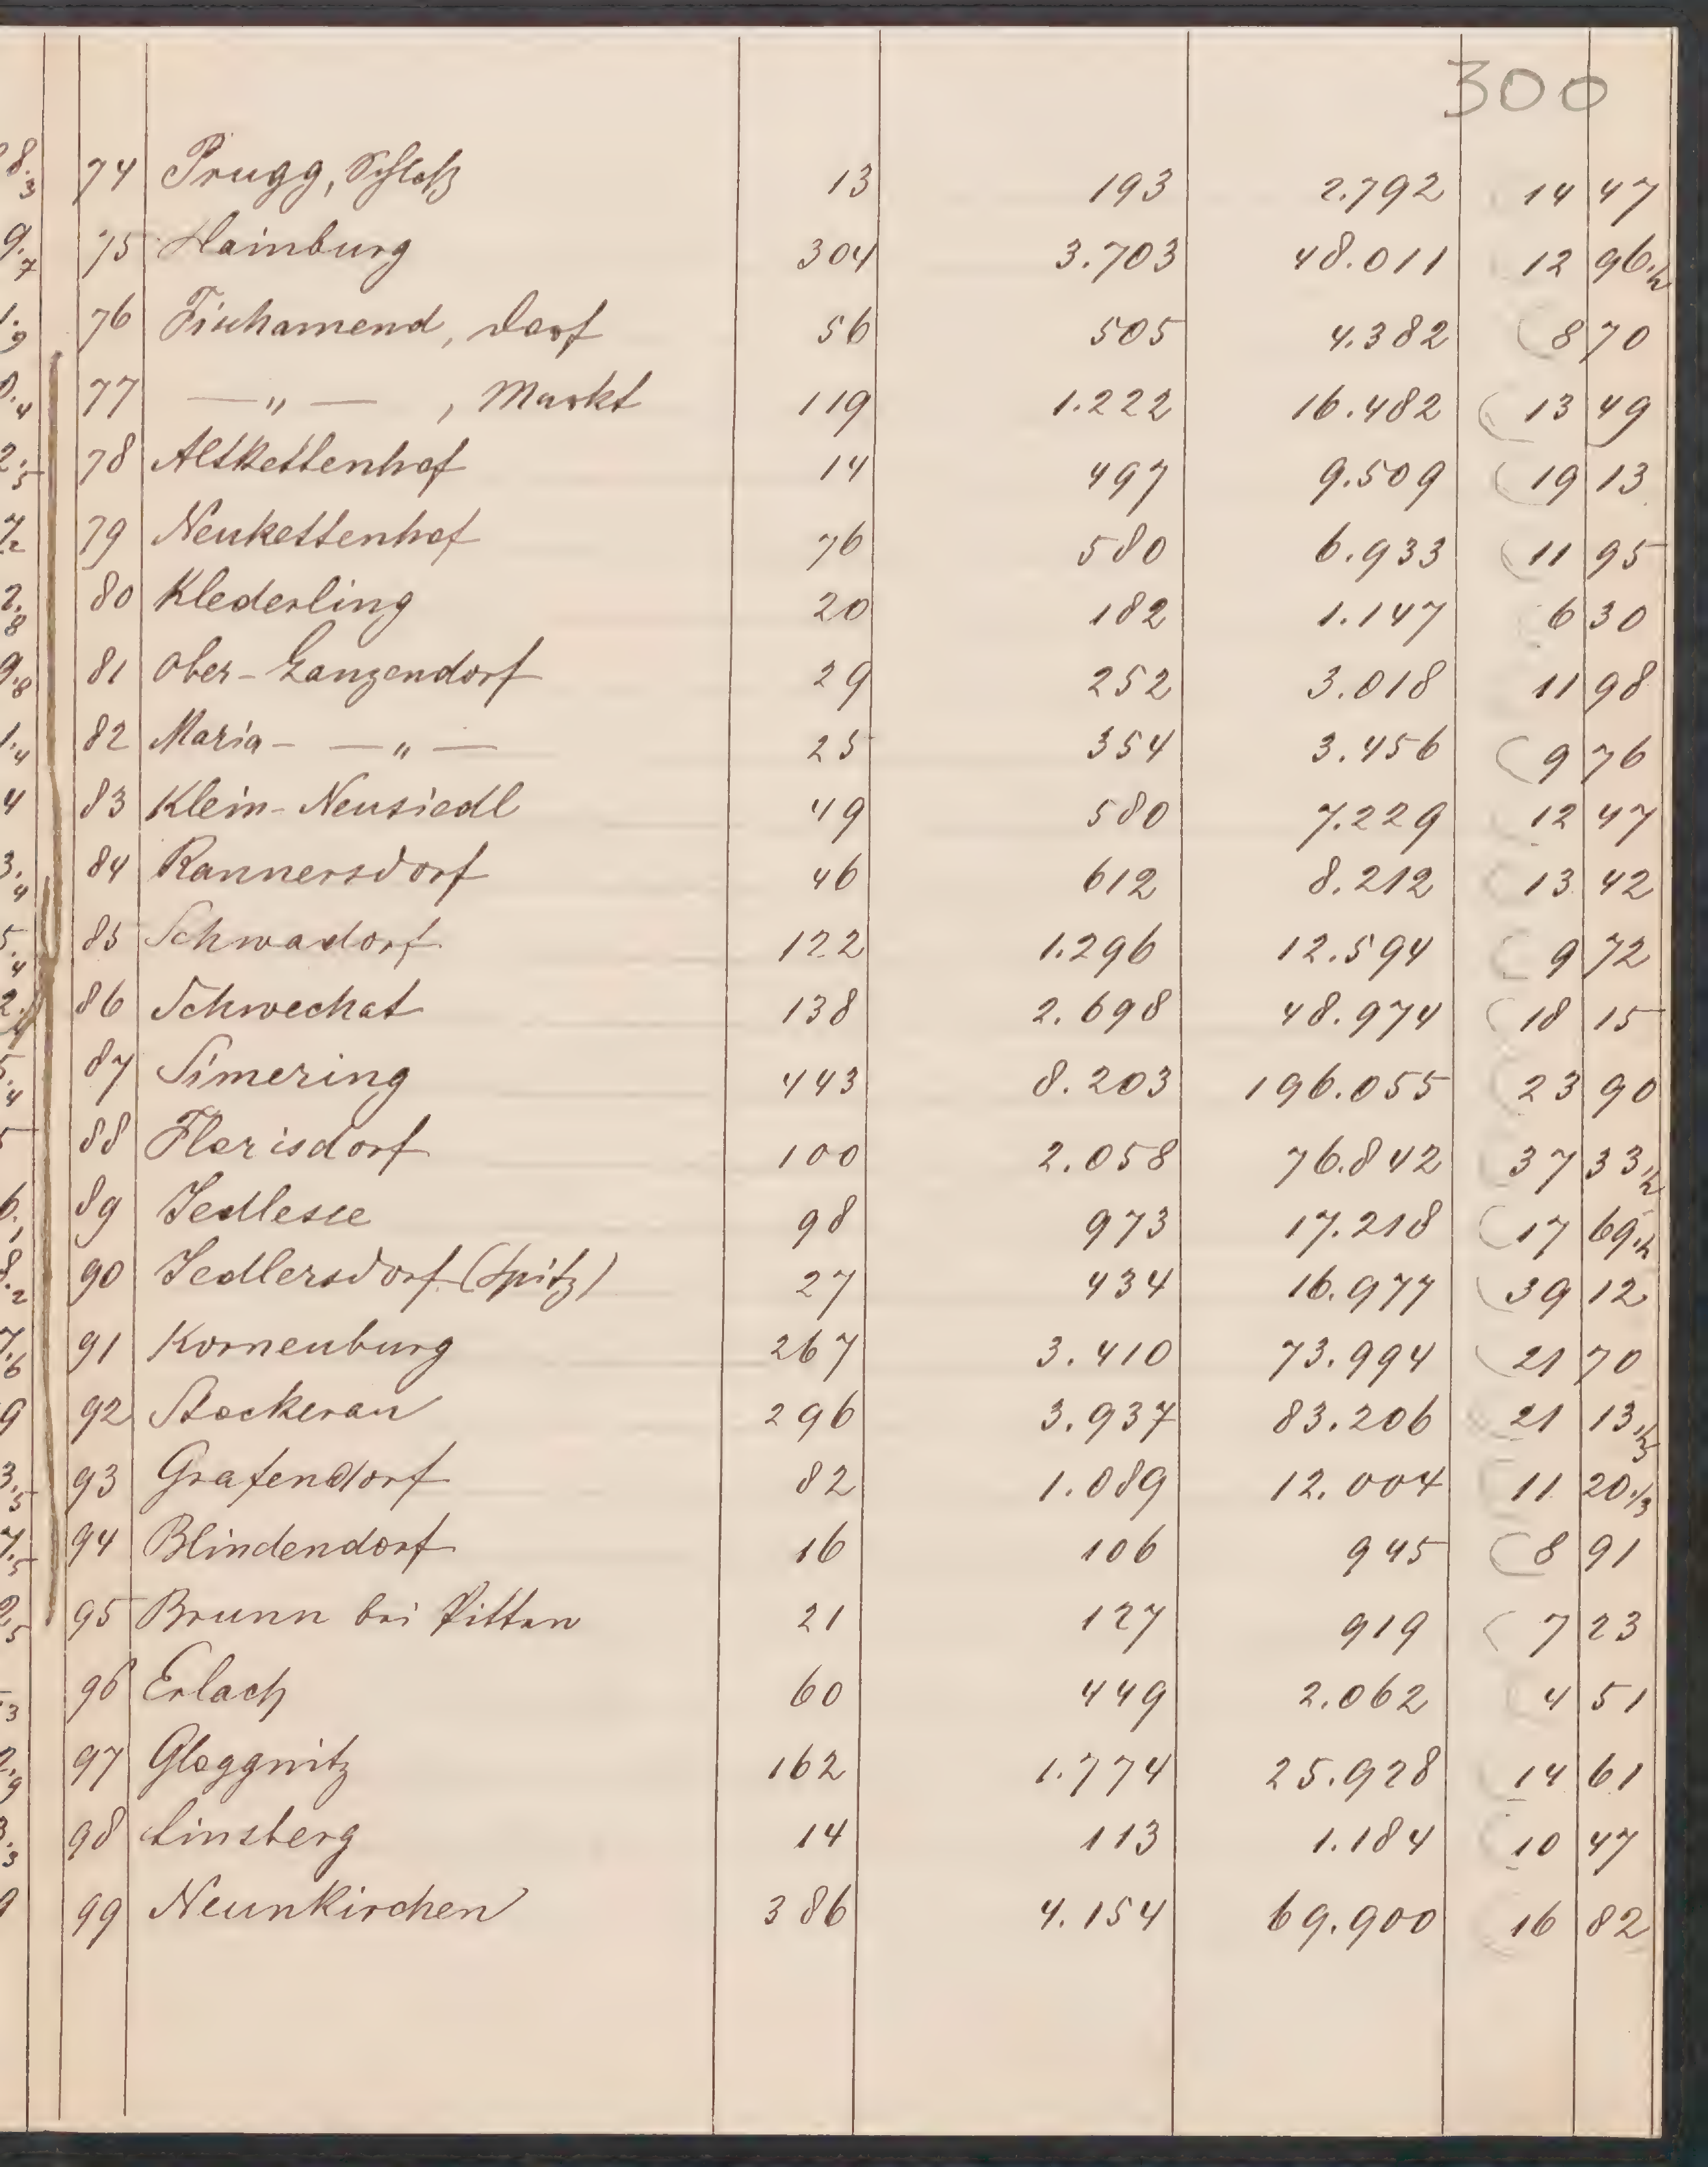 300
74 Prugg, Schloß 13 193 2.792 14 47
75 Hainburg 304 3.703 48.011 12 96.½
76 Fischamend, Dorf 56 505 4.382 8 70
77 — „ — , Markt 119 1.222 16.482 13 49
78 Altkettenhof 14 497 9.509 19 13
79 Neukettenhof 76 580 6.933 11 95
80 Klederling 20 182 1.147 6 30
81 Ober-Lanzendorf 29 252 3.018 11 98
82 Maria- — „ — 25 354 3.456 9 76
83 Klein-Neusiedl 49 580 7.229 12 47
84 Rannersdorf 46 612 8.212 13 42
85 Schwadorf 122 1.296 12.594 9 72
86 Schwechat 138 2.698 48.974 18 15
87 Simering 443 8.203 196.055 23 90
88 Florisdorf 100 2.058 76.842 37 33½
89 Jedlesee 98 973 17.218 17 69.½
90 Jedlersdorf (Spitz) 27 434 16.977 39 12
91 Korneuburg 267 3.410 73.994 21 70
92 Stockerau 296 3.937 83.206 21 13
93 Grafendorf 82 1.089 12.004 11 20.⅓
94 Blindendorf 16 106 945 8 91
95 Brunn bei Pitten 21 127 919 7 23
96 Erlach 60 449 2.062 4 51
97 Gloggnitz 162 1.774 25.928 14 61
98 Linsberg 14 113 1.184 10 47
99 Neunkirchen 386 4.154 69.900 16 82